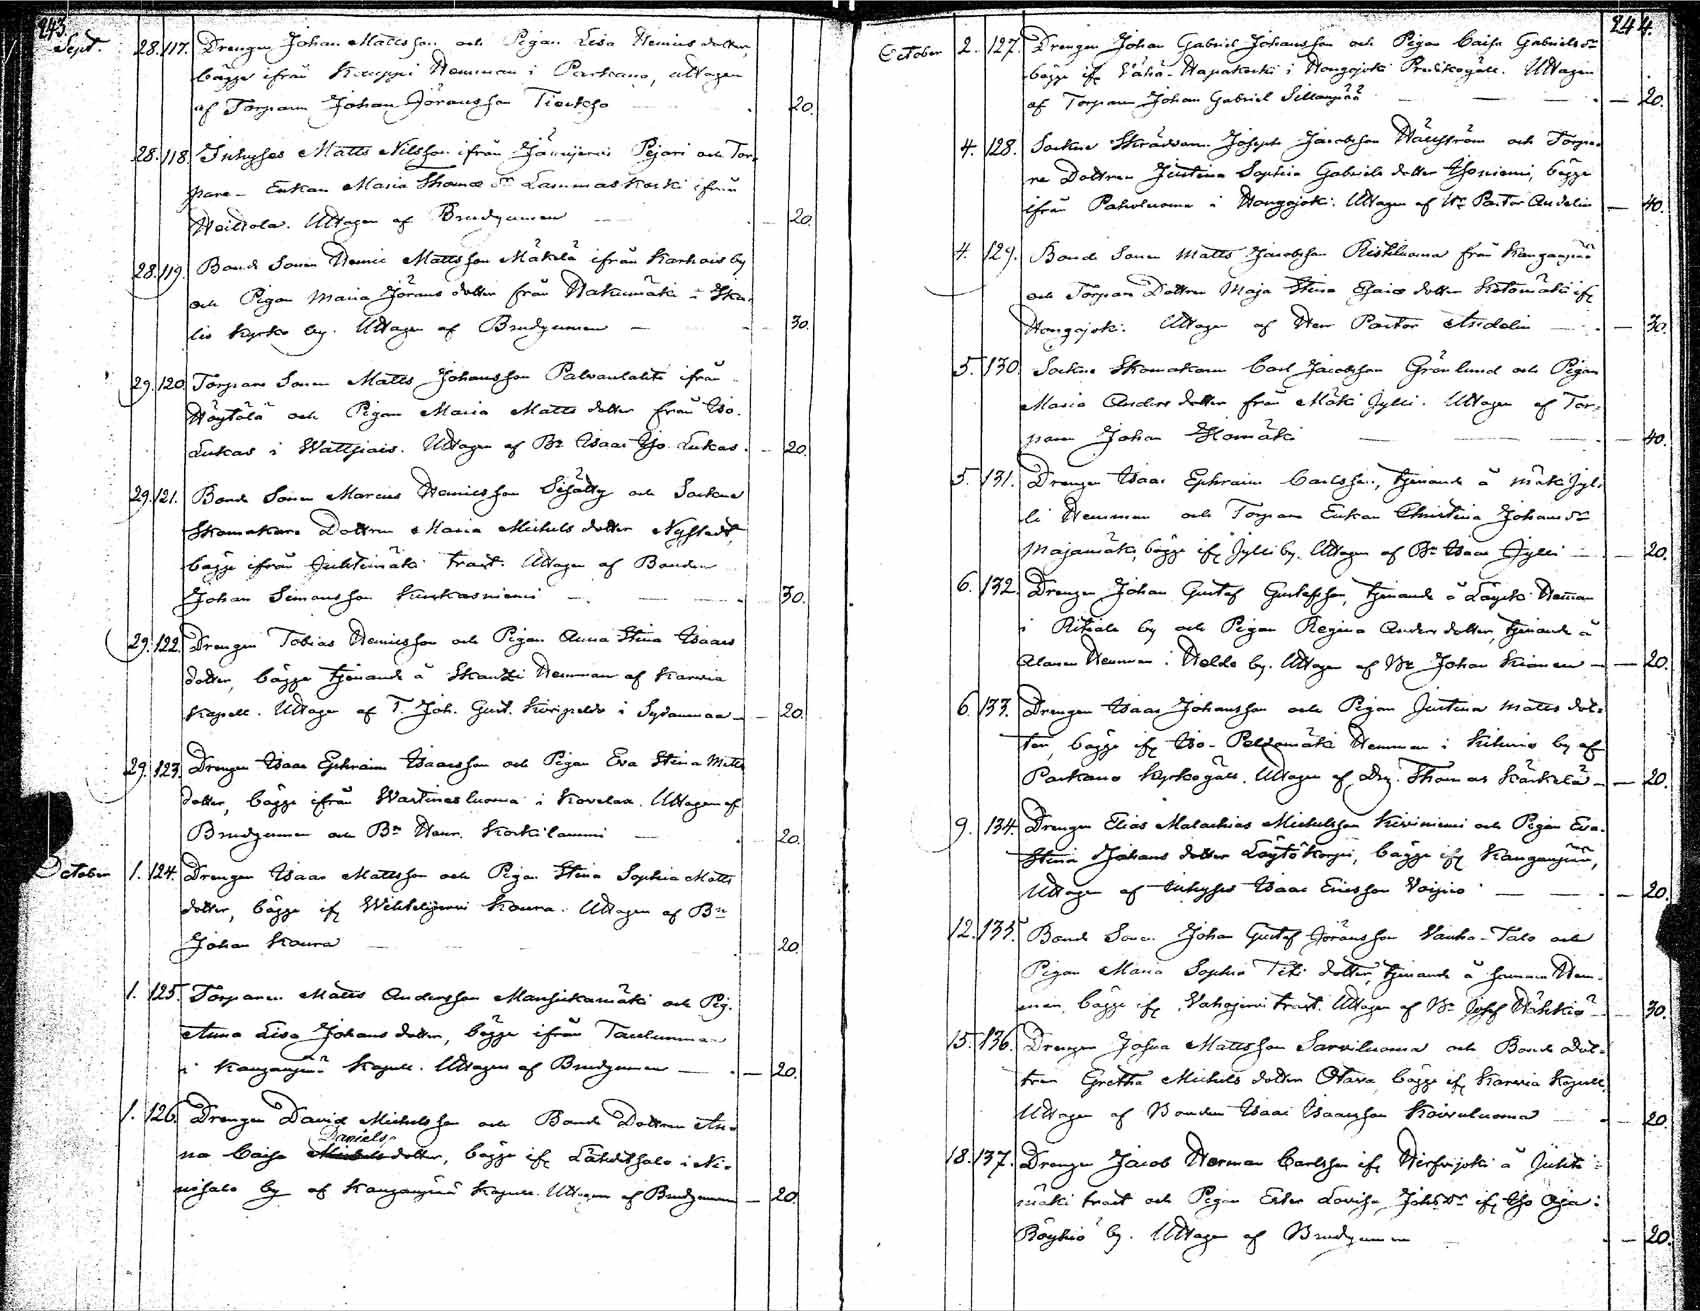 243.
Sept. 28. 117. Drengen Johan Mattsson och Pigan Lisa Henrics dotter,
bägge ifrån Kauppi Hemman i Parkano, Uttagen
af Torparn Johan Jöransson 20.
28. 118. Inhyses Matts Nilsson ifrån Jämijervi Pejari och Tor-
pare Enkan Maria Thomæ dr Lammaskoski ifrån
Heittola. Uttagen af Brudgumen 20.
28. 119. Bonde Sonen Henric Mattsson Mäkelä ifrån Karhois by
och Pigan Maria Jörans dotter från Hakumäki i Ika-
lis Kyrko by. Uttagen af Brudgumen 30.
29. 120. Torpare Sonen Matts Johansson Palvanlahti ifrån
Höytölä och Pigan Maria Matts dotter från Iso-
Lukas i Wattjiais. Uttagen af Bn Isaac Iso-Lukas. 20.
29. 121. Bonde Sonen Marcus Henricsson och Sockne
Skomakare Dottren Maria Michels dotter Nystedt,
bägge ifrån Juhtimäki trakt. Uttagen af Bonden
Johan Simonsson Kurkasniemi 30.
29. 122. Drengen Tobias Henricsson och Pigan Anna Stina Isaacs
dotter, bägge tjenande å Skantzi Hemman af Karvia
Kapell. Uttagen af T. Joh. Gust. i Sydänmaa 20.
29. 123. Drengen Isaac Ephraim Isaacsson och Pigan Eva Stina Matts
dotter, bägge ifrån Wartinesluoma i Kovelax. Uttagen af
Brudgumen och Bn Henr. Koskilammi 20.
October 1. 124. Drengen Isaac Mattsson och Pigan Stina Sophia Matts
dotter, bägge ifr Koura. Uttagen af Bn
Johan Koura 20.
1. 125. Torparen Matts Andersson Mansikamäki och Pig.
Anna Lisa Johans dotter, bägge ifrån
i Kangasnjemi Kapell. Uttagen af Brudgumen 20.
1. 126. Drengen David Michelsson och Bonde Dottren An-
Daniels
na Caisa Michels dotter, bägge ifr Lähdesalo i Ni-
nisalo by af Kapell. Uttagen af Brudgumen 20.
244.
October 2. 127. Drengen Johan Gabriel Johansson och Pigan Caisa Gabriels dr
bägge ifr Vähä-Hapakoski i Hongojoki. Uttagen
af Torparn Johan Gabriel Sillanpää 20.
4. 128. Sockne Skräddarn Joseph Jacobsson och Torpa-
re Dottren Justina Sophia Gabriels dotter Isoniemi, bägge
ifrån Paholuoma i Hongojoki. Uttagen af Hr Pastor Andelin 40.
4. 129. Bonde Sonen Matts Jacobsson från
och Torpare Dottren Maja Stina Esaiæ dotter Ketomäki ifr
Hongojoki. Uttagen af Herr Pastor Andelin 30.
5. 130. Sockne Skomakarn Carl Jacobsson Grönlund och Pigan
Maria Anders dotter från Mäki Jylli. Uttagen af Tor-
parn Johan 40.
5. 131. Drengen Isaac Ephraim Carlsson, tjenande å Mäki Jyl-
li Hemman och Torpare Enkan Christina Johans dr
Majamäki, bägge ifr Jylli by. Uttagen af Bn Isaac Jylli 20.
6. 132. Drengen Johan Gustaf Gustafsson, tjenande å Hemman
i Ritiala by och Pigan Regina Anders dotter, tjenande å
Alanen Hemman i by. Uttagen af Bn Johan 20.
6. 133. Drengen Isaac Johansson och Pigan Justina Matts dot-
ter, bägge ifr Iso-Peltomäki Hemman i Kihniö by af
Parkano Kyrkogäll. Uttagen af Drg. Thomas Kärkelä 20.
9. 134. Drengen Elias Malachias Michelsson Kiviniemi och Pigan Eva
Stina Johans dotter Löytökorpi, bägge ifr
Uttagen af Inhyses Isaac Ericsson Voijrio 20.
12. 135. Bonde Sonen Johan Gustaf Jöransson Vanha-Talo och
Pigan Maria Sophia dotter, tjenande å samma Hem-
man, bägge ifr trakt. Uttagen af Bn Josef 30.
15. 136. Drengen Josua Mattsson Sarviluoma och Bonde Dot-
tren Gretha Michels dotter Otava, bägge ifr Karvia Kapell.
Uttagen af Bonden Isaac Isaacsson Koivuluoma 20.
18. 137. Drengen Jacob Herman Carlsson ifr Hirsijoki å Juhti-
mäki trakt och Pigan Ester Lovisa Johs dr ifr Iso Oja i
Röyhiö by. Uttagen af Brudgumen 20.